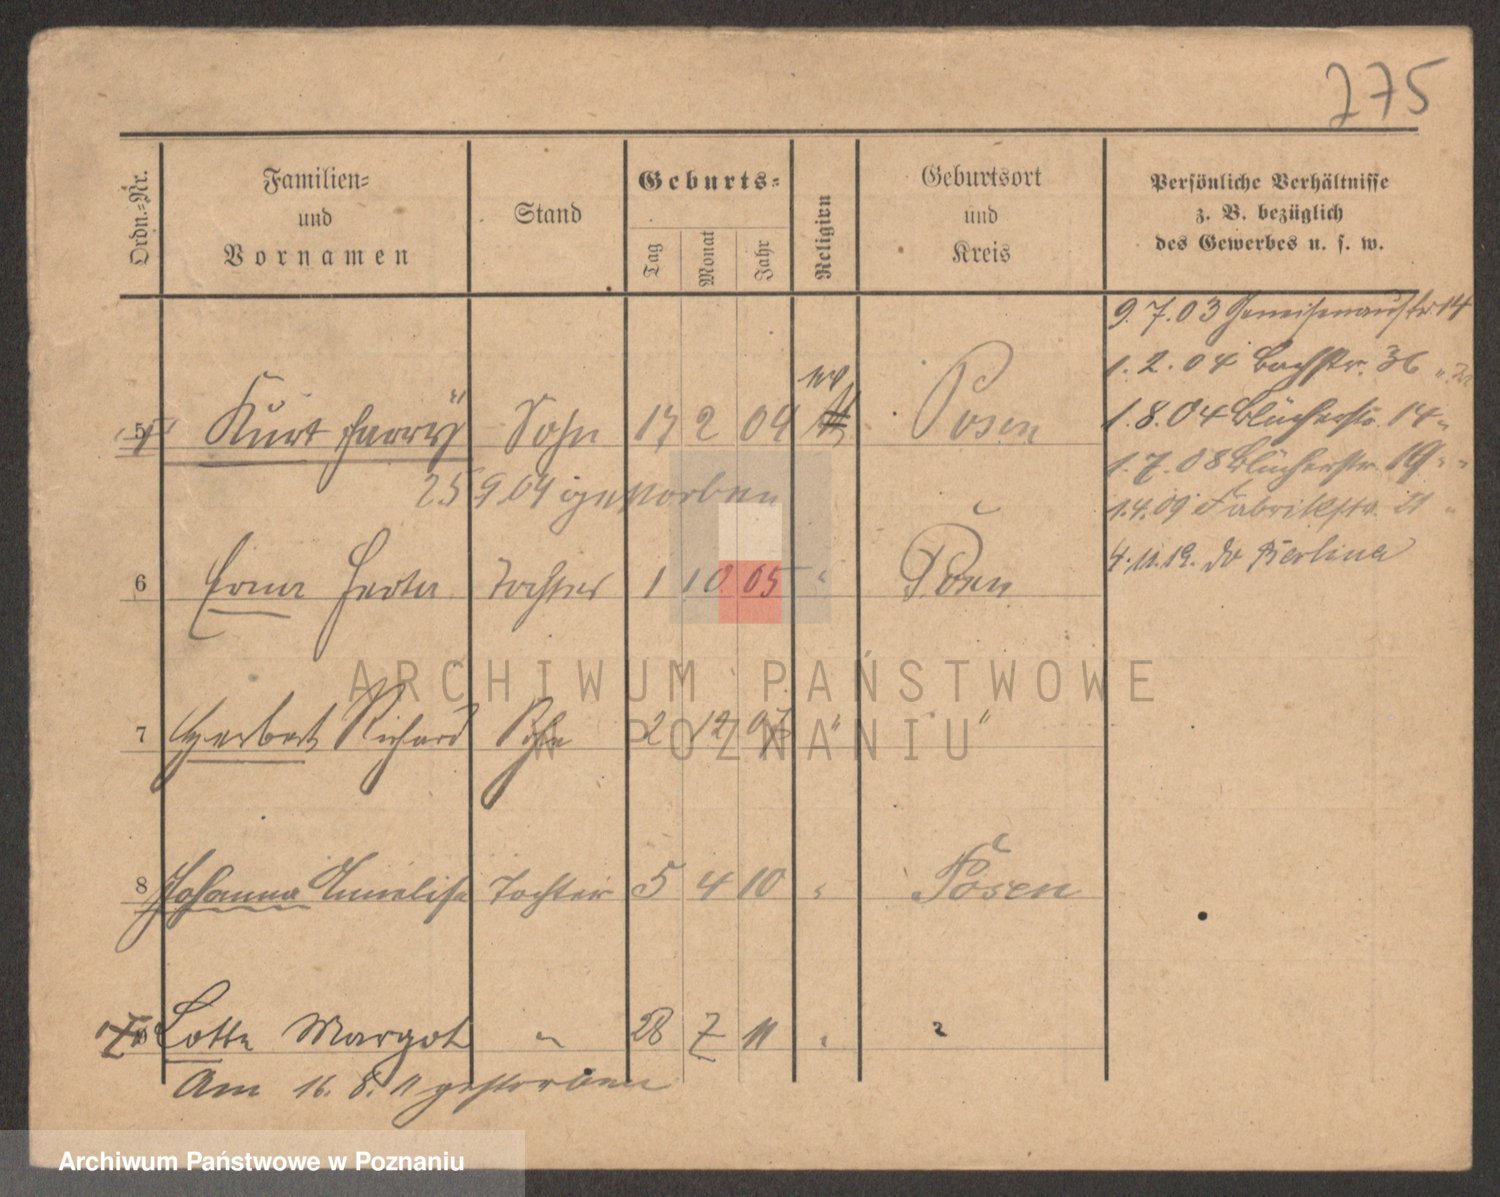 275
Ordn.-Nr.
Familien-
und
Vornamen
Stand
Geburts-
Tag
Monat
Jahr
Religion
Geburtsort
und
Kreis
Persönliche Verhältnisse
z. B. bezüglich
des Gewerbes u. s. w.
9.7.03 Gneisenaustr. 14
1.2.04 Bachstr. 36 "
1.8.04 Blücherstr. 14 "
1.7.08 Blücherstr. 19 " "
1.4.09 Fabrikstr. 21 "
5 Kurt Sohn 17 2 04 Posen
25 9.04 gestorben
6 Erna Herta Tochter 1 10 05 " Posen
7 Herbert Richard Sohn 2 12 " "
8 Johanna Annelise Tochter 5 4 10 " Posen
9 Lotte Margot " 28 7 11 " "
Am 16.8.11 gestorben
ARCHIWUM PAŃSTWOWE
W POZNANIU
Archiwum Państwowe w Poznaniu